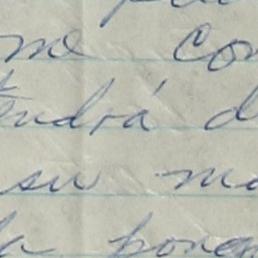 me con
tendrá d
su ma
la ponen